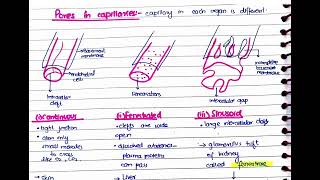 Pores in capillaries:- capillary in each organ is different.
basement membrane
endothelial cells
intercellular cleft
fenestrations
incomplete basement membrane
intercellular gap
(i) continuous
(ii) fenestrated
(iii) Sinusoid
• tight junction
• clefts are wide open
• large intercellular clefts
• allow only small molecules to cross
plasma proteins can pass
• glomerulus tuft of kidney called fenestrae
• skin
• liver